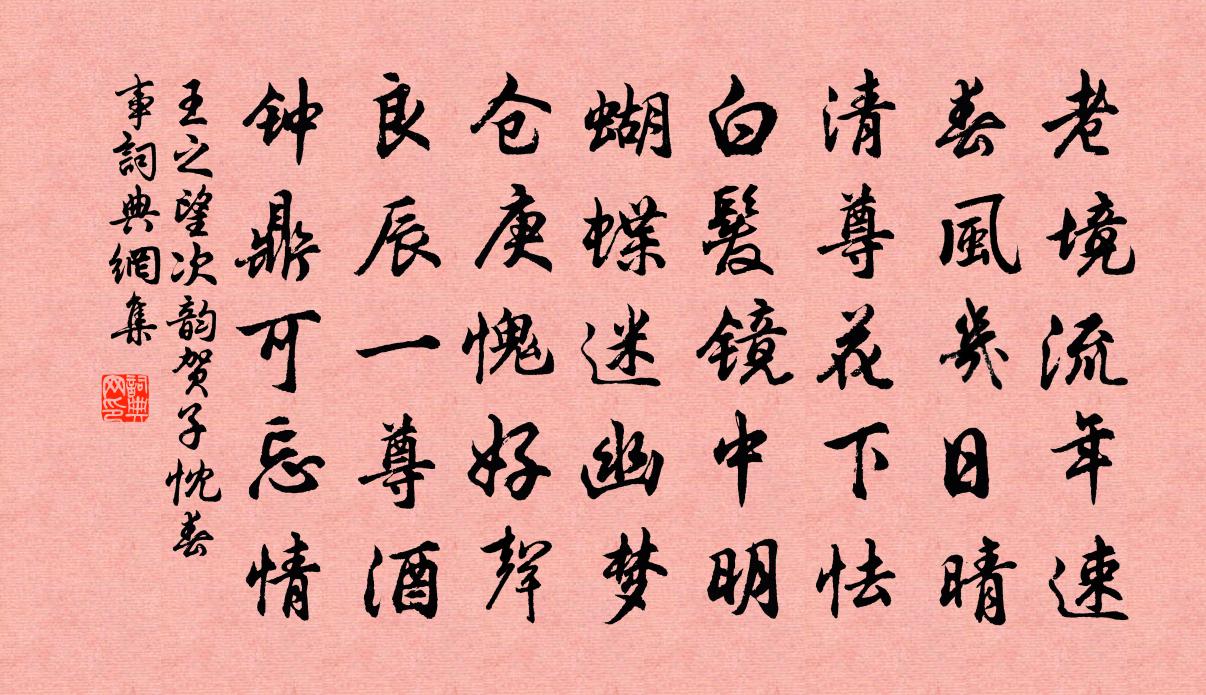 老境流年速
春風幾日晴
清尊花下怯
白髮镜中明
蝴蝶迷幽梦
仓庚愧好聲
良辰一尊酒
钟鼎可忘情
王之望次韵贺子忱春
事詞典網集
詞典
网印